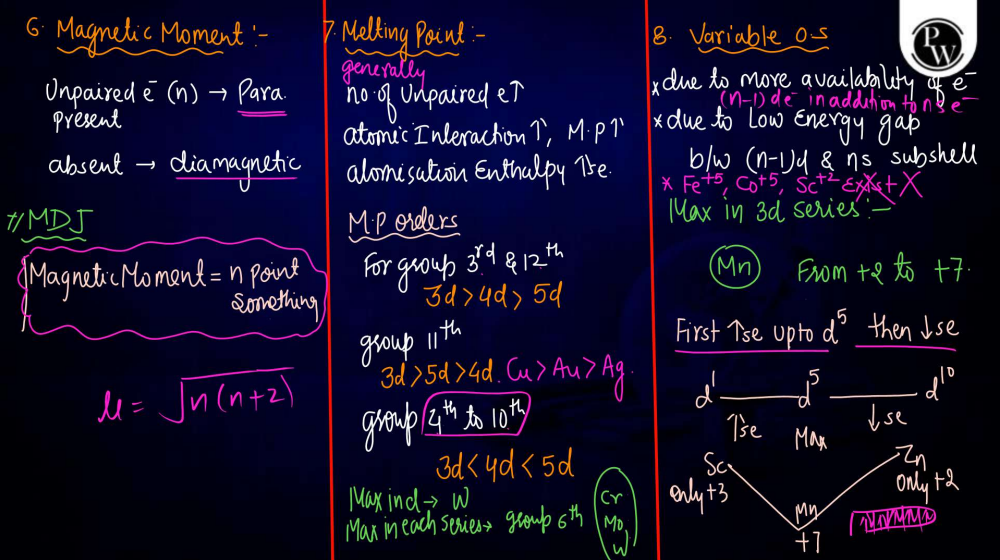 6. Magnetic Moment :-
Unpaired e̅ (n) → Para.
present
absent → diamagnetic
// MDJ
Magnetic Moment = n point
Something
μ = √n(n+2)
7. Melting Point :-
generally
no. of Unpaired e↑
atomic Interaction ↑, M.P ↑
atomisation Enthalpy ↑se.
M.P orders
For group 3rd & 12th
3d > 4d > 5d
group 11th
3d > 5d > 4d. Cu > Au > Ag.
group 4th to 10th
3d < 4d < 5d
Max in d → W
Max in each series → group 6th
Cr
Mo
W
8. Variable O.S
* due to more availability of e-
(n-1) d e- in addition to ns e-
* due to Low Energy gap
b/w (n-1)d & ns subshell
* Fe+5, Co+5, Sc+2 Exist X
Max in 3d series :-
Mn From +2 to +7.
First ↑se upto d5 then ↓se
d1 d5 d10
↑se Max ↓se
Sc Zn
only +3 only +2
Mn
+7
PW